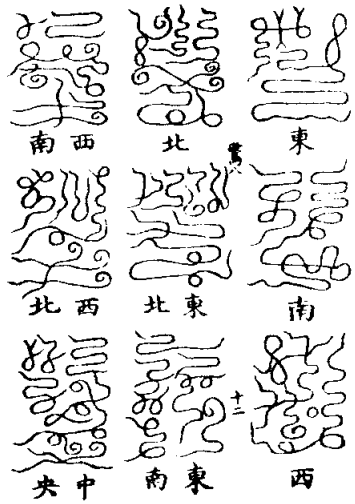 東
北
西南
南
東北
西北
西
十二
東南
中央